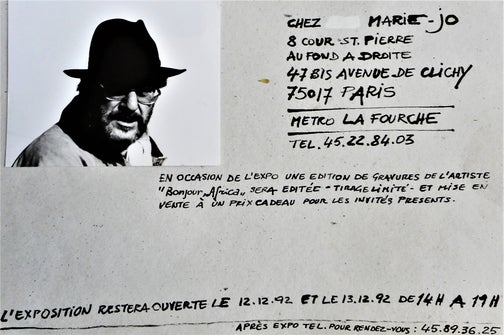 CHEZ MARIE-JO
8 COUR ST. PIERRE
AU FOND A DROITE
47 BIS AVENUE DE CLICHY
75017 PARIS
METRO LA FOURCHE
TEL. 45.22.84.03
EN OCCASION DE L'EXPO UNE EDITION DE GRAVURES DE L'ARTISTE
"Bonjour Africa" SERA EDITÉE - TIRAGE LIMITÉ - ET MISE EN
VENTE À UN PRIX CADEAU POUR LES INVITÉS PRESENTS.
L'EXPOSITION RESTERA OUVERTE LE 12.12.92 ET LE 13.12.92 DE 14H A 19H
APRÈS EXPO TEL. POUR RENDEZ-VOUS: 45.89.36.25